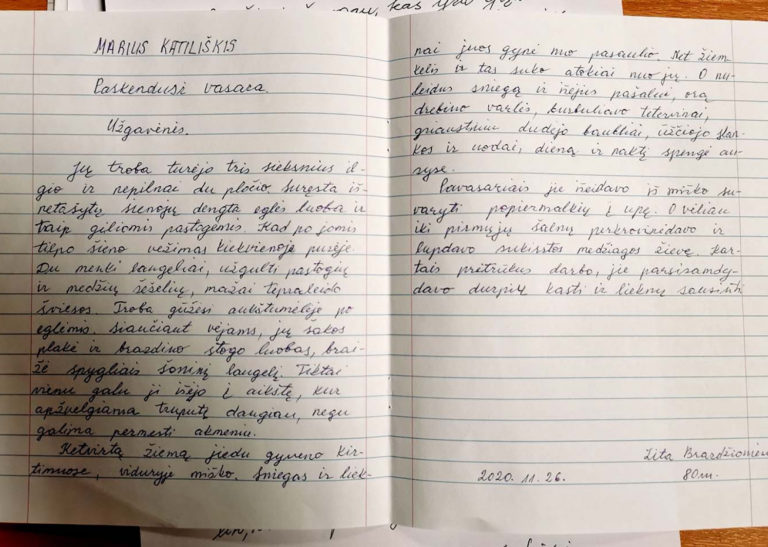 MARIUS KATILIŠKIS
Paskendusi vasara.
Užgavėnis.
Jų troba turėjo tris sieksnius il-
gio ir nepilnai du pločio suręsta iš
netašytų sienojų dengta eglės luoba ir
taip giliomis pastogėmis. Kad po jomis
tilpo šieno vežimas kiekvienoje pusėje.
Du menki langeliai, užgulti pastogių
ir medžių šešėlių, mažai tepraleido
šviesos. Troba gūžėsi aukštumėlėje po
eglėmis. siaučiant vėjams, jų šakos
plakė ir brazdino stogo luobas, brai-
žė spygliais šoninį langelį. Tiktai
vienu galu ji išėjo į aikštę, kur
apžvelgiama truputį daugiau, negu
galima permesti akmeniu.
Ketvirtą žiemą jiedu gyveno kir-
timuose, viduryje miško. Sniegas ir liek-
nai juos gynė nuo pasaulio. Net žiem
kelis ir tas suko atokiai nuo jų. O nu-
leidus sniegą ir išėjus pašalui, orą
drebino varlės, burbuliavo tetervinai,
griaustiniu dudėjo baubliai, ūžčiojo slan-
kos ir uodai, dieną ir naktį spengė au-
syse.
Pavasariais jie išeidavo iš miško su-
varyti popiermalkių į upę. O vėliau
iki pirmųjų šalnų perkrovinėdavo ir
lupdavo sukirstos medžiagos žievę. Kar-
tais pritrūkus darbo, jie parsisamdy-
davo durpių kasti ir lieknų sausinti
Zita Brazdžionien
2020. 11. 26.
80m.